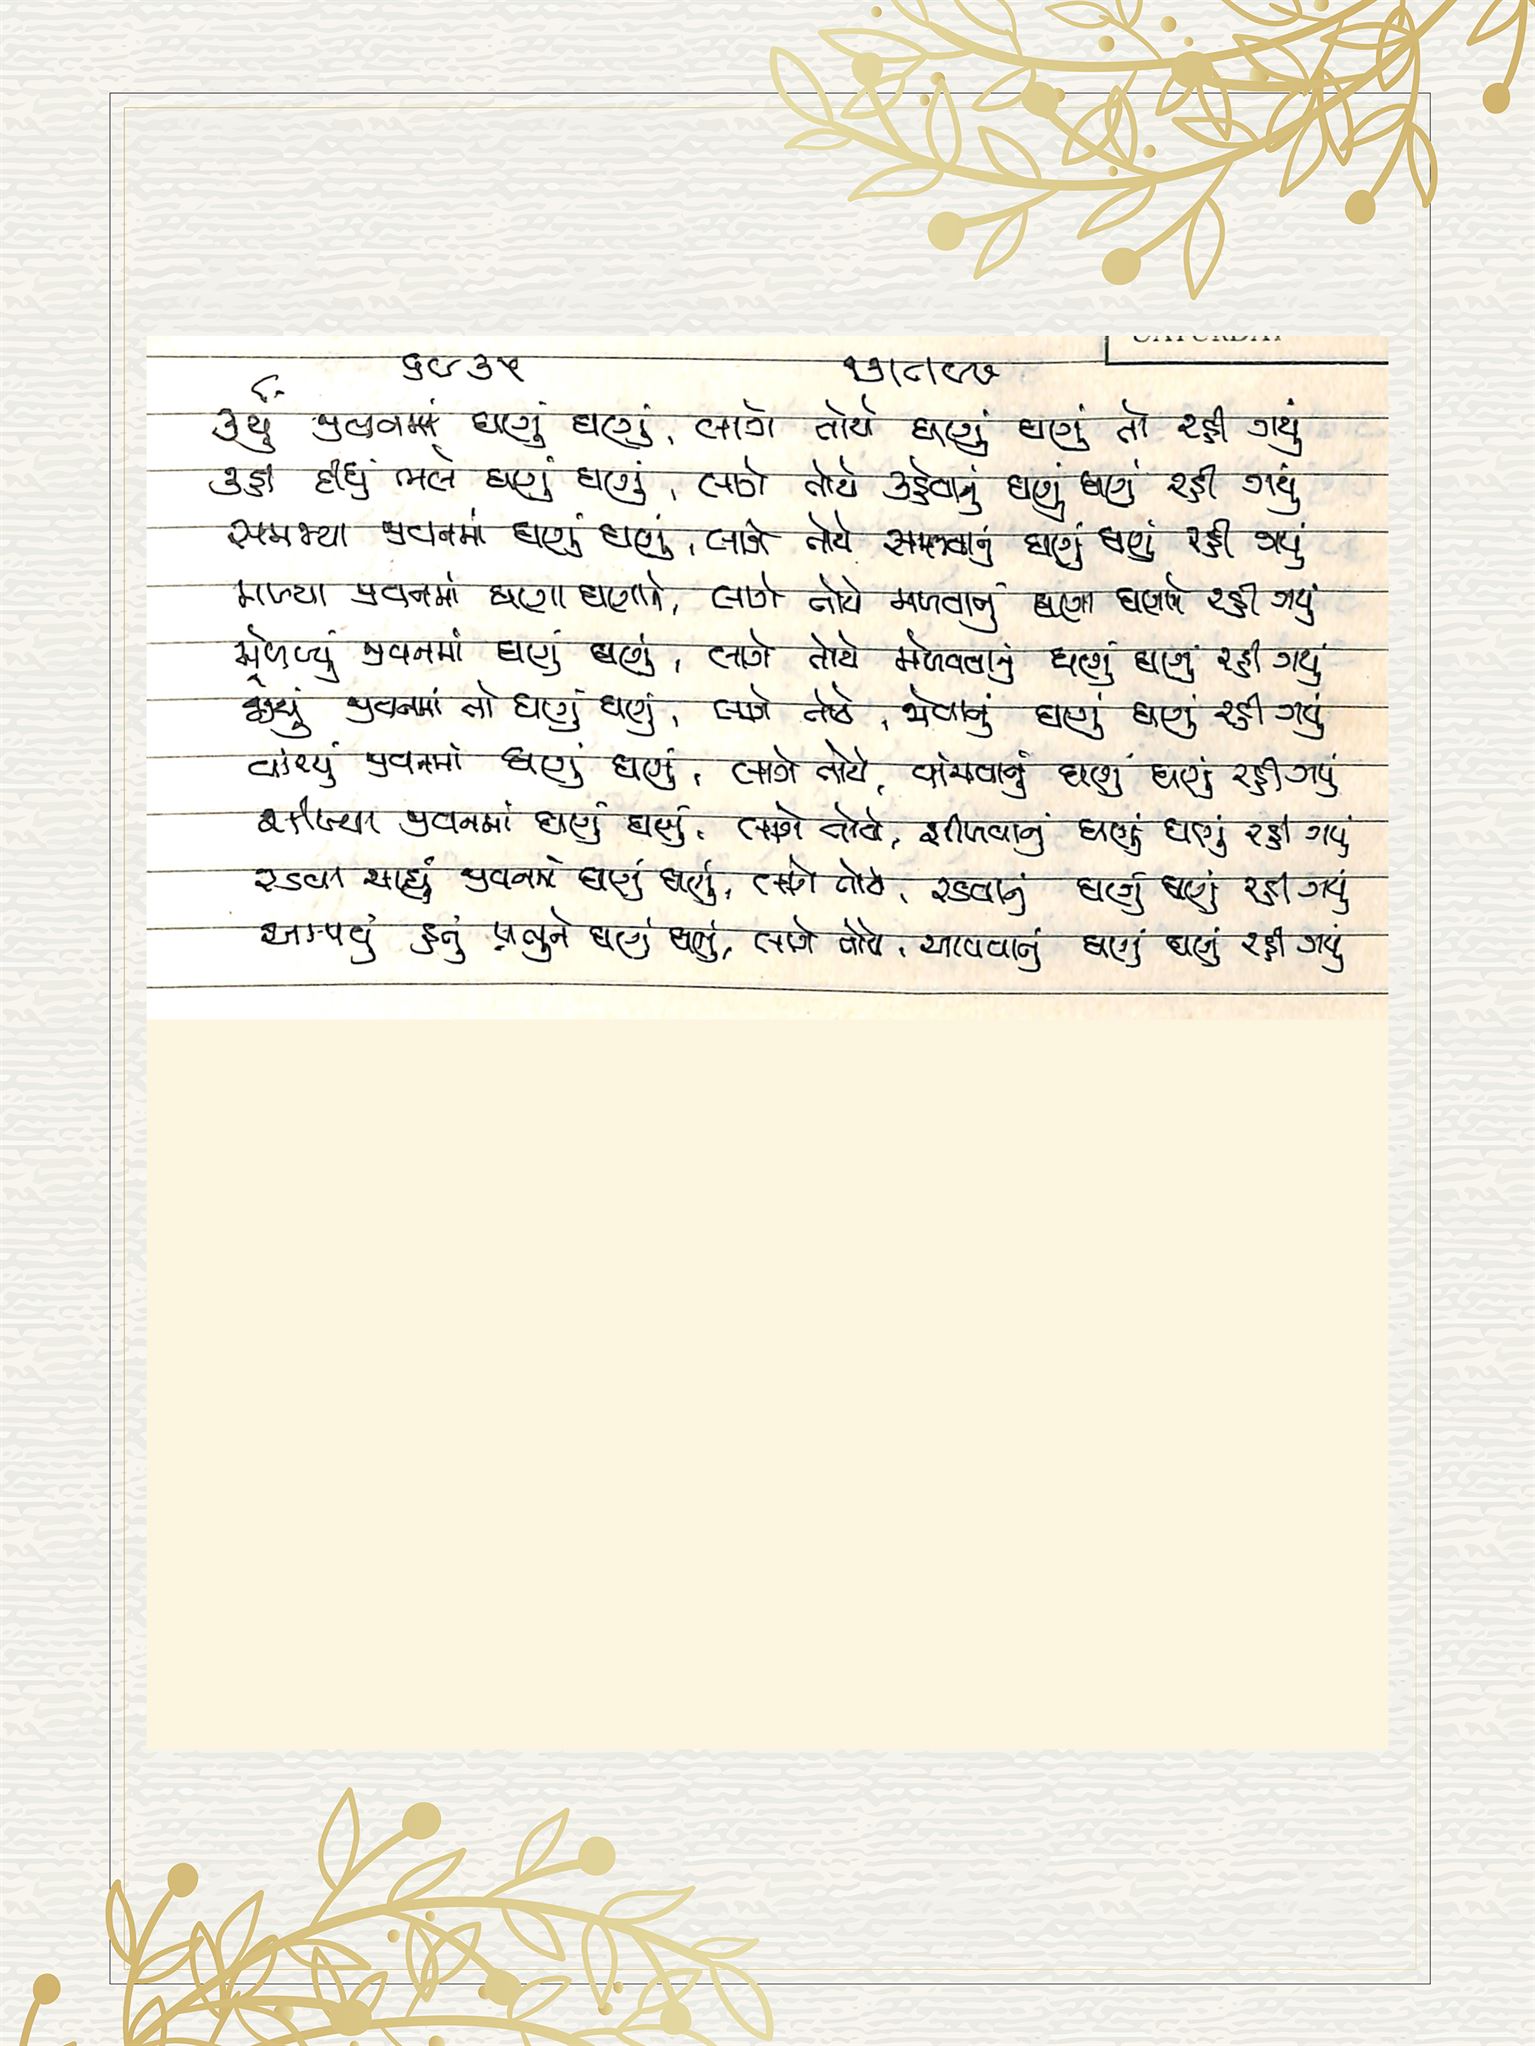 ૬૯૩૫ ૧૩/૮/૯૭
કર્યું જીવનમાં ઘણું ઘણું, લાગે તોયે ઘણું ઘણું તો રહી ગયું
કહી દીધું ભલે ઘણું ઘણું, લાગે તોયે કહેવાનું ઘણું ઘણું રહી ગયું
સમજ્યા જીવનમાં ઘણું ઘણું, લાગે તોયે સમજવાનું ઘણું ઘણું રહી ગયું
મળ્યા જીવનમાં ઘણા ઘણાને, લાગે તોયે મળવાનું ઘણા ઘણાને રહી ગયું
મેળવ્યું જીવનમાં ઘણું ઘણું, લાગે તોયે મેળવવાનું ઘણું ઘણું રહી ગયું
જોયું જીવનમાં તો ઘણું ઘણું, લાગે તોયે, જોવાનું ઘણું ઘણું રહી ગયું
વાંચ્યું જીવનમાં ઘણું ઘણું, લાગે તોયે, વાંચવાનું ઘણું ઘણું રહી ગયું
જીવનમાં ઘણું ઘણું, લાગે તોયે, ઘણું ઘણું રહી ગયું
રડવા જીવનમાં ઘણું ઘણું, લાગે તોયે, રડવાનું ઘણું ઘણું રહી ગયું
આપવું હતું પ્રભુને ઘણું ઘણું, લાગે તોયે, આપવાનું ઘણું ઘણું રહી ગયું